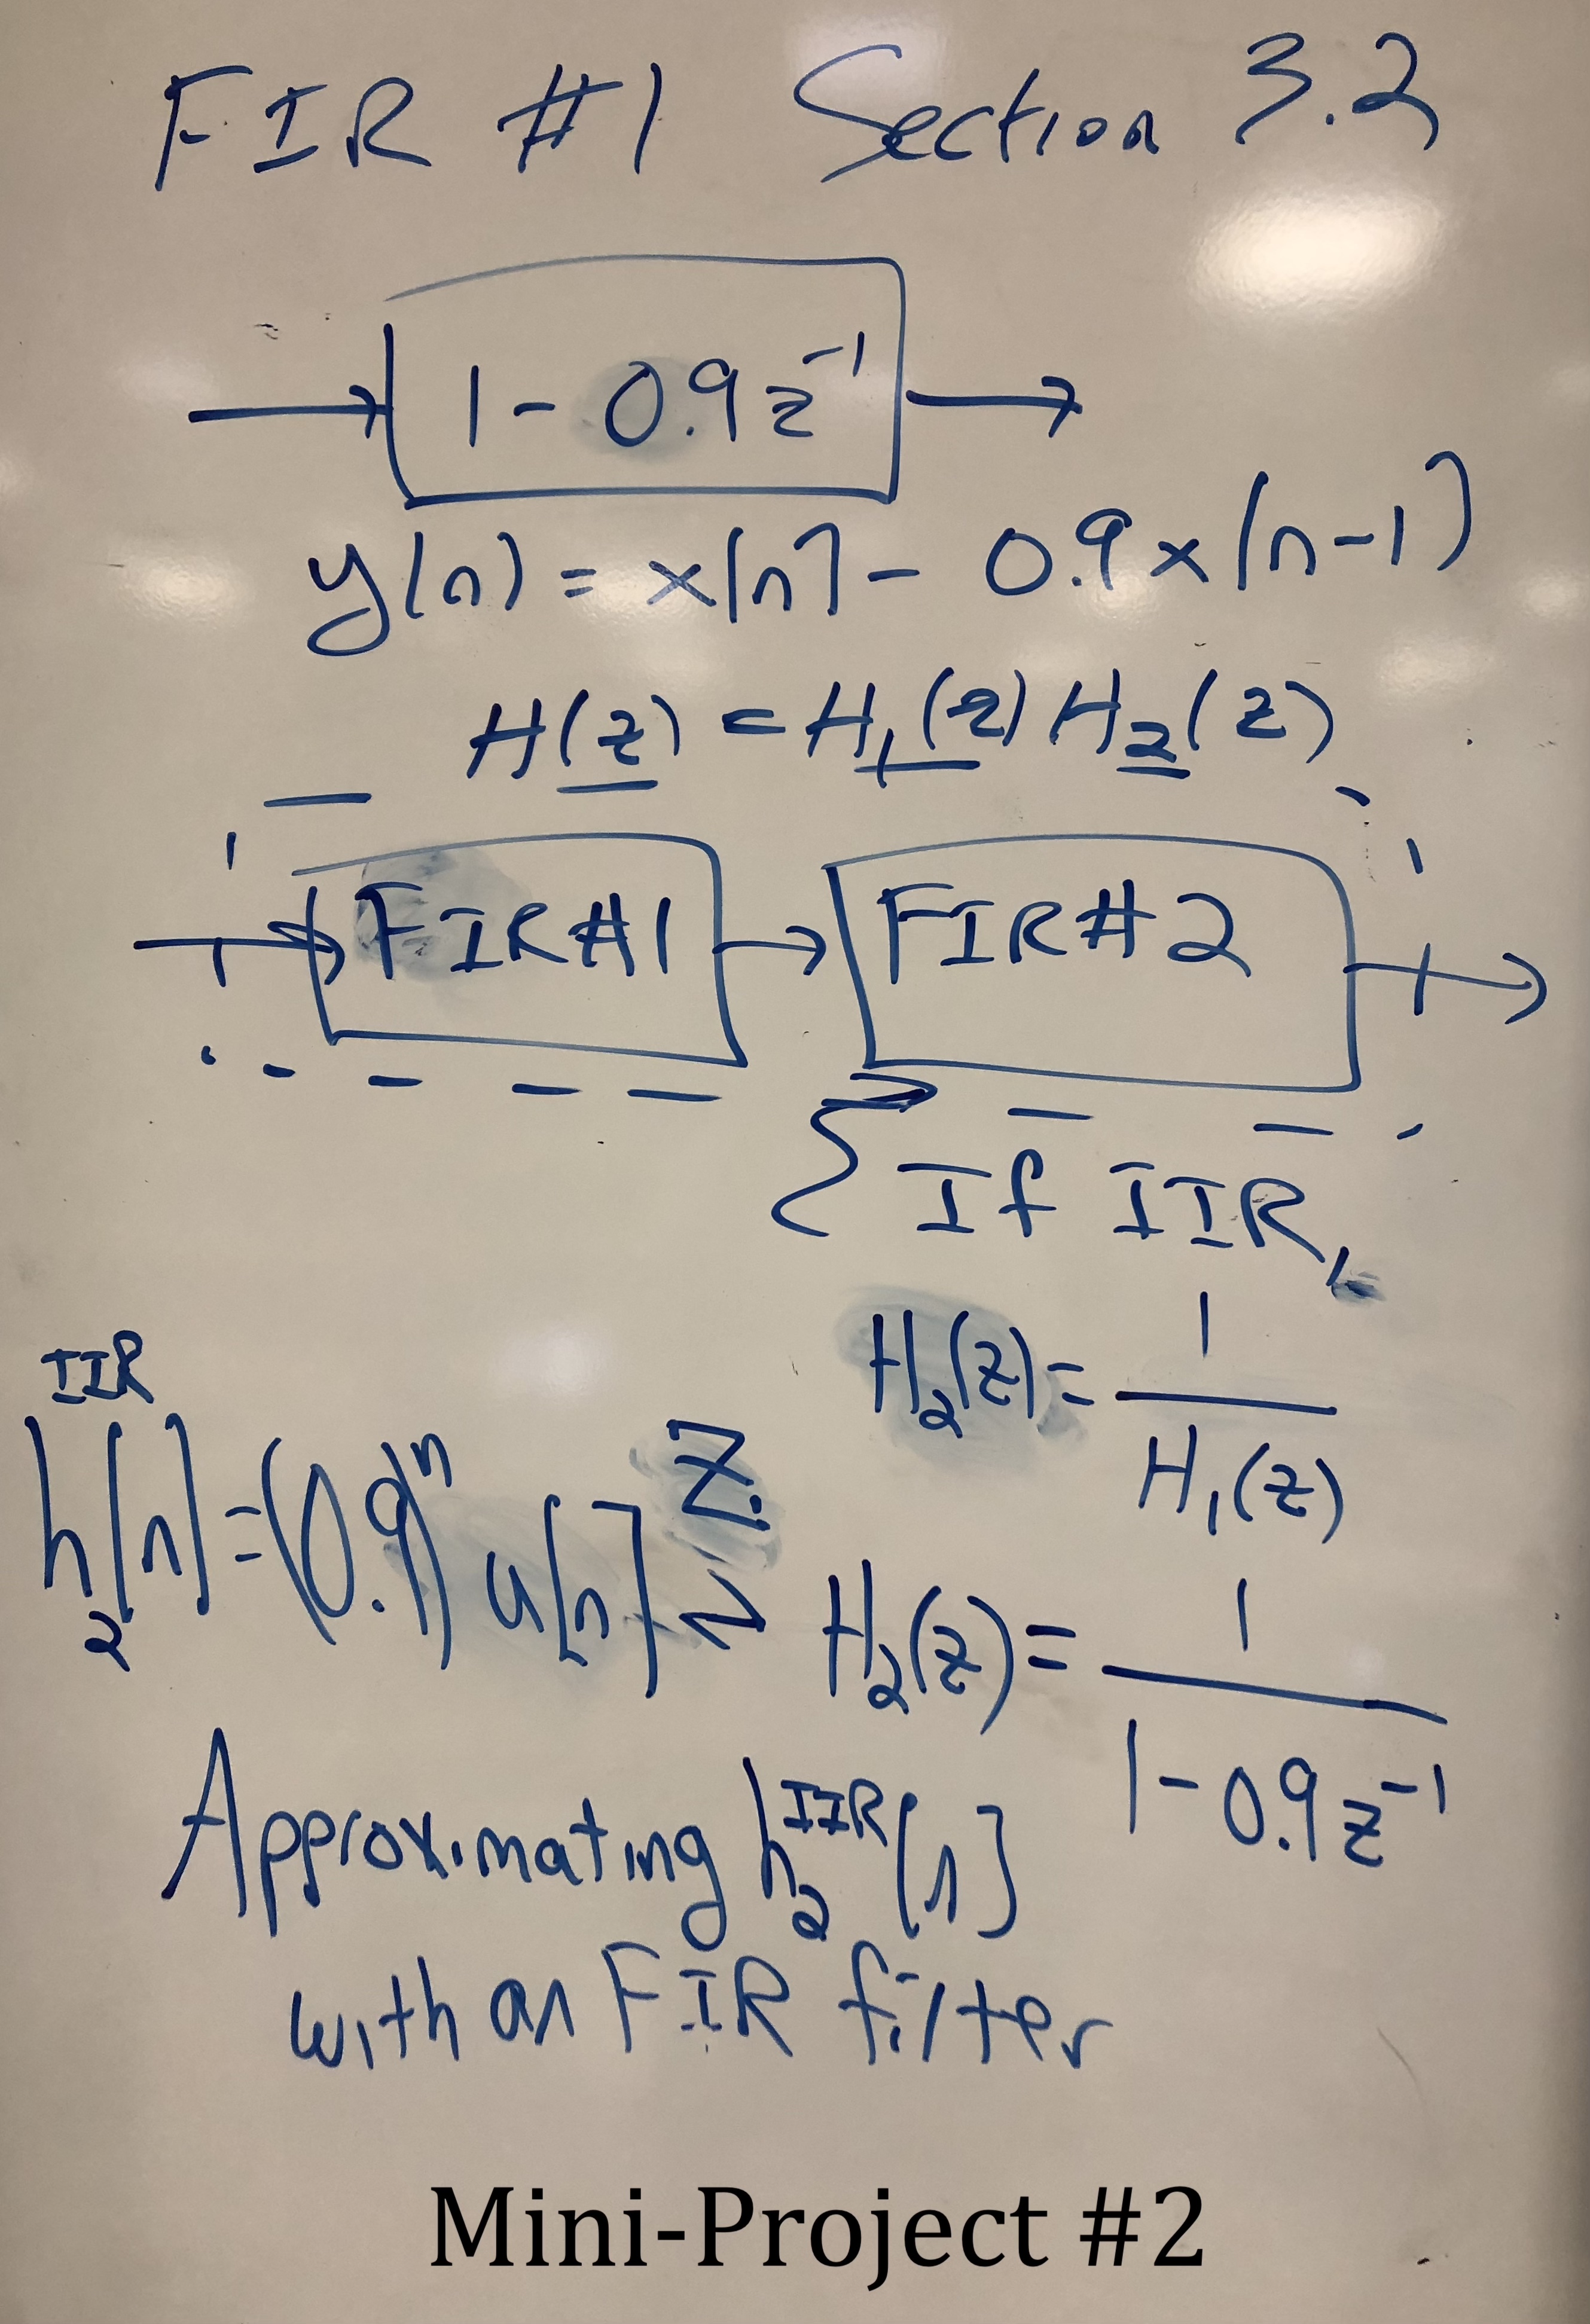 FIR #1 Section 3.2
1 - 0.9 z⁻¹
y[n] = x[n] - 0.9 x[n-1]
H(z) = H₁(z) H₂(z)
FIR #1 FIR #2
If IIR,
H₂(z) = 1 / H₁(z)
h₂ᴵᴵᴿ[n] = (0.9)ⁿ u[n] Z H₂(z) = 1 / (1 - 0.9 z⁻¹)
Approximating h₂ᴵᴵᴿ[n]
with an FIR filter
Mini-Project #2